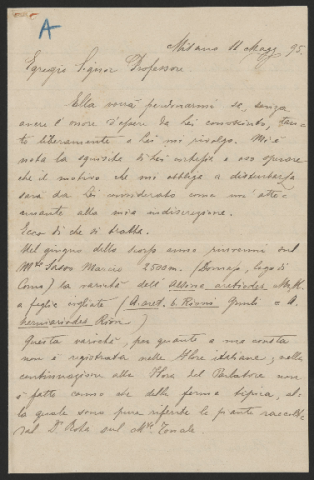 A
Milano 11 Magg. 95.
Egregio Signor Professore
Ella vorrà perdonarmi se, senza
avere l'onore d'essere da Lei conosciuto, tan-
to liberamente a Lei mi rivolgo. Mi è
nota la squisita di Lei e oso sperare
che il motivo che mi obbliga a disturbarla
sarà da Lei considerato come un' atte-
nuante alla mia indiscrezione.
Ecco di che si tratta.
Nel giugno dello scorso anno rinvenni sul
Mte Sasso Marcio 2500 m. (Dongo, lago di
Como) la varietà dell' Alsine aretioides M. K.
a foglie cigliate (A. aret. b. Rionii Gremli = A.
herniarioides Rion.)
Questa varietà, per quanto a me consta
non è registrata nelle Flore italiane; nella
continuazione alla Flora del Parlatore non
è fatto cenno che della forma tipica, al-
la quale sono pure riferite le piante raccolte
dal Dr Rota sul Mte Tonale.